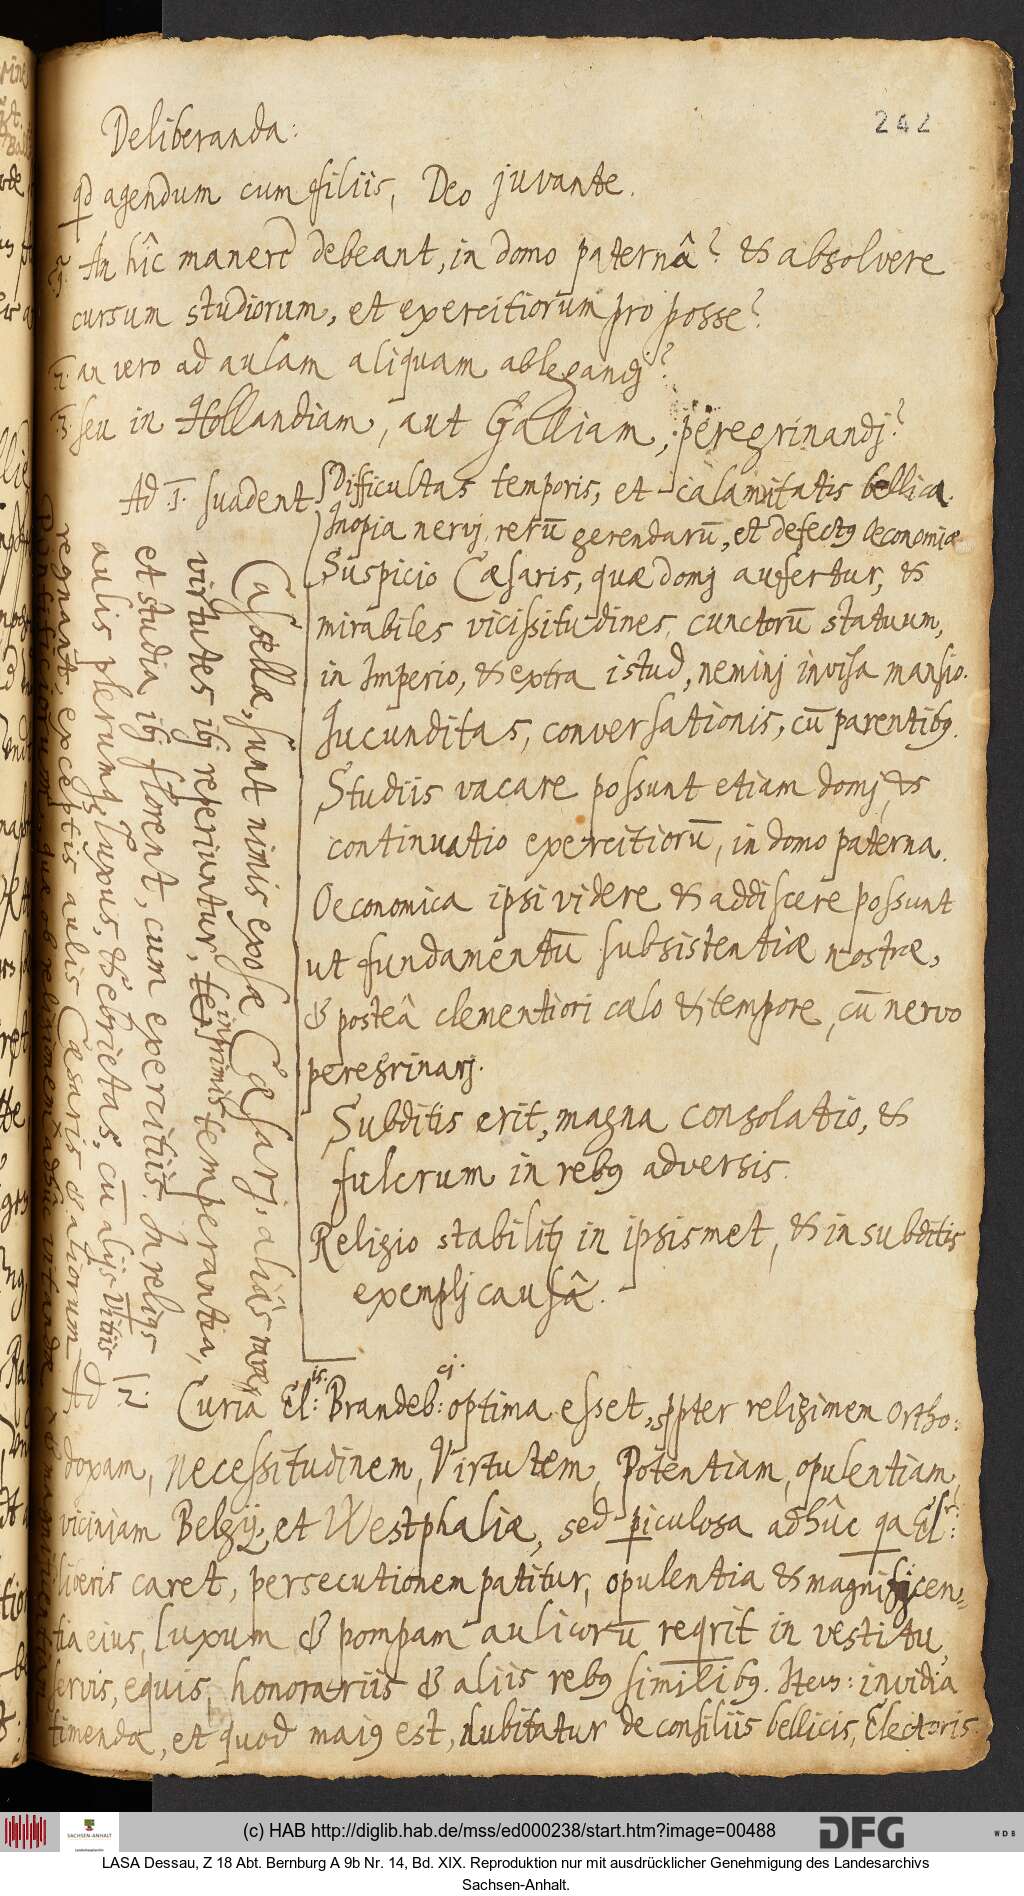 242
Deliberanda:
qd agendum cum filiis, Deo juvante.
An hîc manere debeant, in domo paternâ? & absolvere
cursum studiorum, et exercitiorum pro posse?
2. an vero ad aulam aliquam ablegandj?
3. seu in Hollandiam, aut Galliam, peregrinandj?
Ad 1. suadent
Difficultas temporis, et calamitatis bellica.
Inopia nervj rerū gerendarū, et defectq oeconomiæ
Suspicio Cæsaris, quæ domj aufertur, &
mirabiles vicissitudines cunctorū statuum,
in Imperio, & extra istud, neminj invisa mansio.
Jucunditas, conversationis, cū parentibq.
Studiis vacare possunt etiam domj, &
continuatio exercitiorū, in domo paterna.
Oeconomica ipsi videre & addiscere possunt
ut fundamentū subsistentiæ nostræ,
& posteâ clementiori cælo & tempore, cū nervo
peregrinarj.
Subditis erit, magna consolatio, &
fulcrum in rebq adversis.
Religio stabilitj in ipsismet, & in subditis
exemplj causâ.
Castellæ, sunt nimis exosæ Cæsarj, aliàs raræ
virtutes ibj reperiuntur, inprimis temperantia,
et studia ibj florent, cum exercitiis. In reliqs
aulis plerumq, luxus, & ebrietas, cū aliis vitiis
regnant, exceptis aulis Cæsaris & aliorum
Pontificiorum, quæ ob religionem adhuc vitandæ
Ad 2.
Curia El:is Brandeb:cj. optima esset, ppter religionem Ortho:
doxam, Necessitudinem, Virtutem, Potentiam, opulentiam,
viciniam Belgij, et Westphaliæ, sed piculosa adhûc qa El:r
liberis caret, persecutionem patitur, opulentia & magnificen=
tia eius, luxum & pompam aulicorū reqrit in vestitu,
servis, equis, honorariis & aliis rebq similibq. Item: invidia
timenda, et quod maiq est, dubitatur de consiliis bellicis, Electoris
(c) HAB http://diglib.hab.de/mss/ed000238/start.htm?image=00488
SACHSEN-ANHALT
DFG
WDB
LASA Dessau, Z 18 Abt. Bernburg A 9b Nr. 14, Bd. XIX. Reproduktion nur mit ausdrücklicher Genehmigung des Landesarchivs
Sachsen-Anhalt.